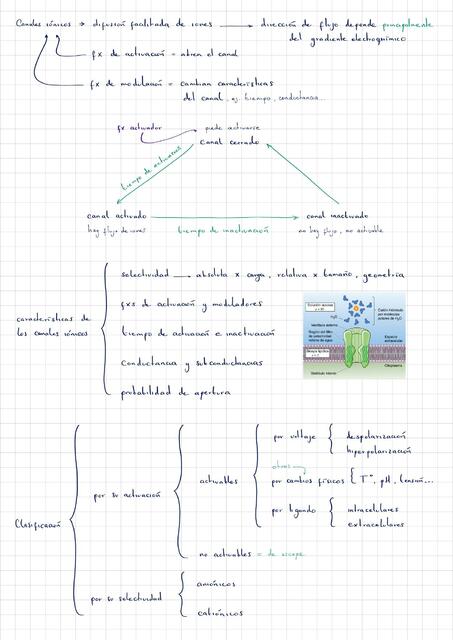 Canales iónicos → difusión facilitada de iones → dirección de flujo depende principalmente
del gradiente electroquímico
fx de activación = abren el canal
fx de modulación = cambian características
del canal, ej. tiempo, conductancia...
fx activador
puede activarse
canal cerrado
tiempo de activación
canal activado
hay flujo de iones
tiempo de inactivación
canal inactivado
no hay flujo, no activable
características de
los canales iónicos
selectividad → absoluta x carga, relativa x tamaño, geometría
fxs de activación y moduladores
tiempo de activación e inactivación
Conductancia y subconductancias
probabilidad de apertura
Espacio
extracelular
Citoplasma
Vestíbulo interno
Clasificación
por su activación
activables
por voltaje
despolarización
hiperpolarización
otros
por cambios físicos { Tº, pH, tensión...
por ligando
intracelulares
extracelulares
no activables = de escape
por su selectividad
aniónicos
catiónicos